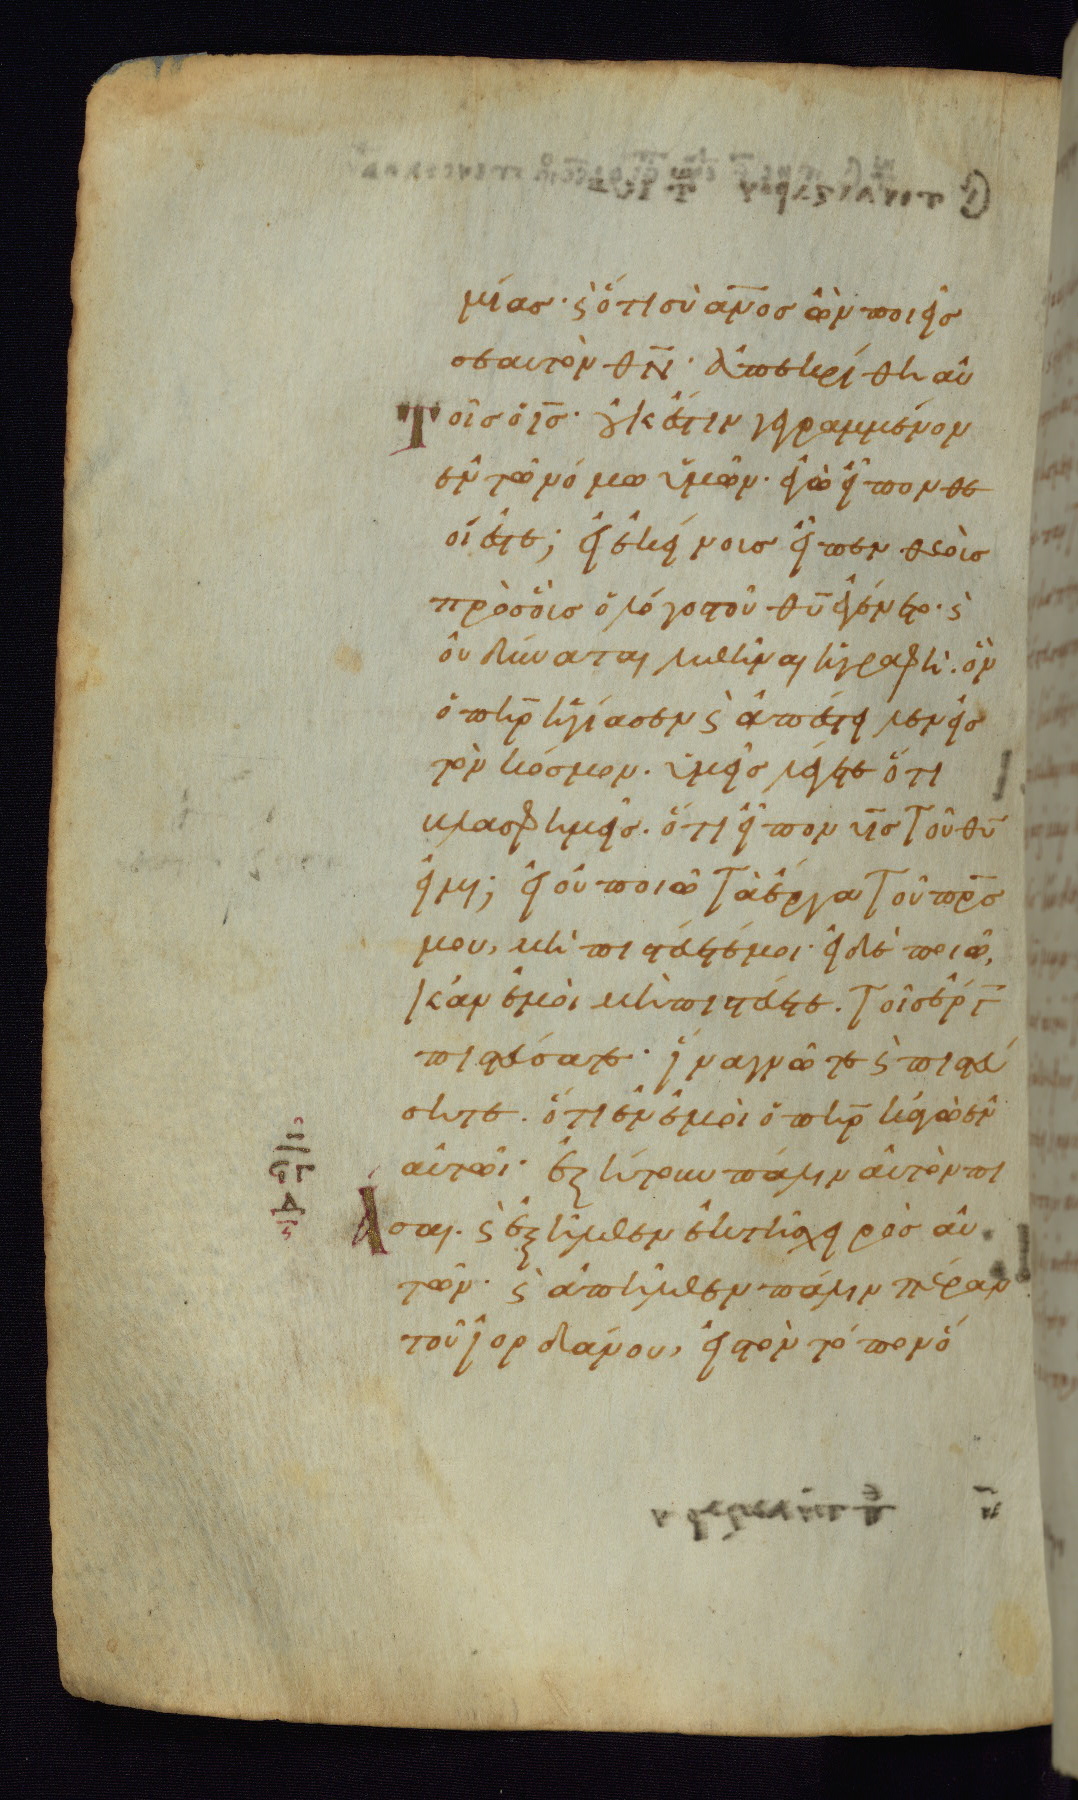 μίας· ϛ ὅτι σὺ ἀν̅ος ὢν ποιεῖς
σεαυτὸν θ̅ν̅· ἀπεκρίθη αὐ
τοῖς ὁ ι̅ς̅· οὐκ ἔστιν γεγραμμένον
ἐν τῶ νόμω ὑμῶν· ἐγὼ εἶπον θε
οί ἐστε; εἰ ἐκείνους εἶπεν θεοὺς
πρὸς οὓς ὁ λόγος τοῦ θ̅υ̅ ἐγένετο· ϛ
οὐ δύναται λυθῆναι ἡ γραφὴ· ὃν
ὁ π̅η̅ρ̅ ἡγίασεν ϛ ἀπέστειλεν εἰς
τὸν κόσμον· ὑμεῖς λέγετε ὅτι
βλασφημεῖς· ὅτι εἶπον υ̅ς̅ τοῦ θ̅υ̅
εἰμι; εἰ οὐ ποιῶ τὰ ἔργα τοῦ π̅ρ̅ς̅
μου, μὴ πιστεύετέ μοι· εἰ δὲ ποιῶ,
κἂν ἐμοὶ μὴ πιστεύετε· τοῖς ἔργ̅
πιστεύσατε· ἵνα γνῶτε ϛ πιστεύ
σητε· ὅτι ἐν ἐμοὶ ὁ π̅η̅ρ̅ κἀγὼ ἐν
αὐτῶι· ἐζήτουν πάλιν αὐτὸν πι
άσαι· ϛ ἐξῆλθεν ἐκ τῆς χειρὸς αὐ
τῶν· ϛ ἀπῆλθεν πάλιν πέραν
τοῦ ἰορδάνου, εἰς τὸν τόπον ὅ